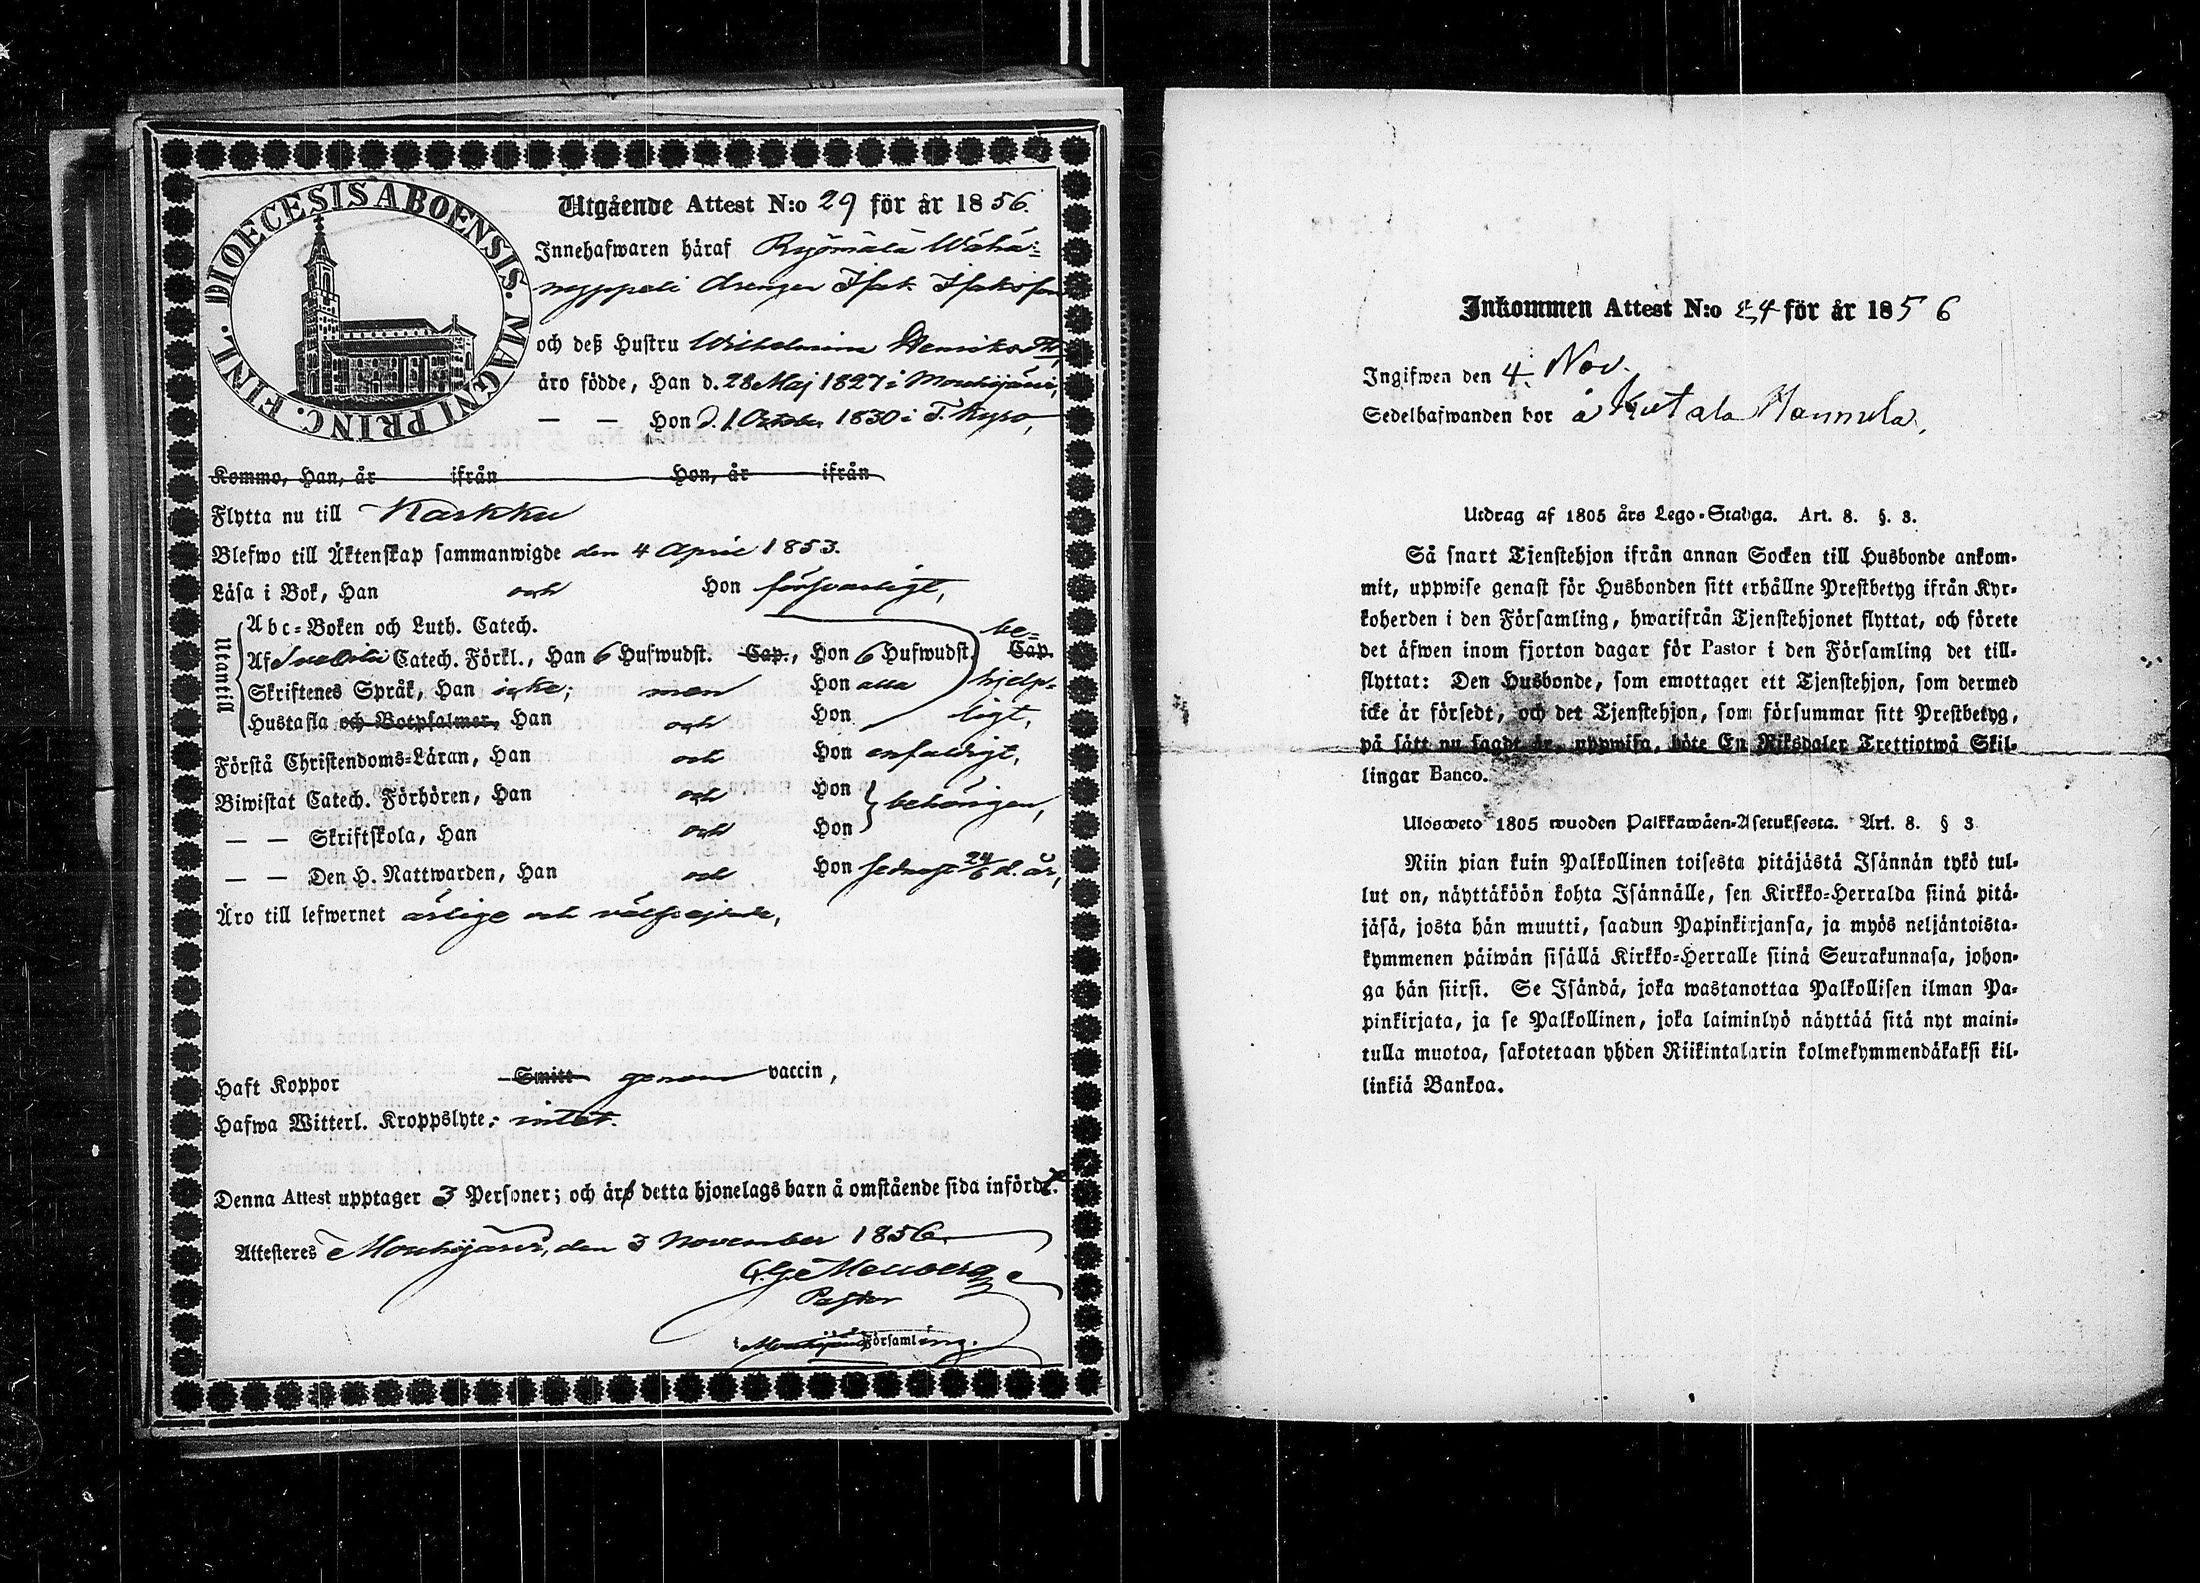 DIOECESIS ABOENSIS. MAGNI PRINC. FINL.
Utgående Attest N:o 29 för år 1856.
Innehafwaren häraf Ryömälä Wähä=
nyppeli drengen Isak Isaksson
och deß Hustru Wilhelmina Henriksdr,
äro födde, Han d. 28 Maj 1827 i Mouhijärvi,
— — Hon d. 1 Octob. 1830 i T. Kyro,
Kommo, Han, år ifrån Hon, år ifrån
Flytta nu till Karkku
Blefwo till Äktenskap sammanwigde den 4 April 1853.
Läsa i Bok, Han och Hon försvarligt,
Utantill
Abc=Boken och Luth. Catech.
Af Svebelii Catech. Förkl., Han 6 Hufwudst. Cap., Hon 6 Hufwudst. Cap. be-
Skriftenes Språk, Han icke; men Hon alla hjelp-
Hustafla och Botpsalmer, Han och Hon ligt,
Förstå Christendoms=Läran, Han och Hon enfaldigt,
Biwistat Catech. Förhören, Han och Hon behörigen,
— — Skriftskola, Han och Hon
— — Den H. Nattwarden, Han och Hon sednast 24/6 d. år,
Äro till lefwernet ärlige och välfrejdade,
Haft Koppor Smitt genom vaccin,
Hafwa Witterl. Kroppslyte: intet.
Denna Attest upptager 3 Personer; och äro detta hjonelags barn å omstående sida införde.
Attesteres Mouhijärvi, den 3 November 1856.
Pastor
i Mouhijärvi Församling.
Inkommen Attest N:o 24 för år 1856
Ingifwen den 4. Nov.
Sedelhafwanden bor å Kutala Hannula,
Utdrag af 1805 års Lego=Stadga. Art. 8. §. 3.
Så snart Tjenstehjon ifrån annan Socken till Husbonde ankom=
mit, uppwise genast för Husbonden sitt erhållne Prestbetyg ifrån Kyr=
koherden i den Församling, hwarifrån Tjenstehjonet flyttat, och förete
det äfwen inom fjorton dagar för Pastor i den Församling det till=
flyttat: Den Husbonde, som emottager ett Tjenstehjon, som dermed
icke är försedt, och det Tjenstehjon, som försummar sitt Prestbetyg,
på sätt nu sagdt är, uppwisa, böte En Riksdaler Trettiotwå Skil=
lingar Banco.
Ulosweto 1805 wuoden Palkkawäen=Asetuksesta. Art. 8. § 3
Niin pian kuin Palkollinen toisesta pitäjästä Isännän tykö tul=
lut on, näyttäköön kohta Isännälle, sen Kirkko=Herralda siinä pitä=
jäsä, josta hän muutti, saadun Papinkirjansa, ja myös neljäntoista=
kymmenen päiwän sisällä Kirkko=Herralle siinä Seurakunnasa, johon=
ga hän siirsi. Se Isändä, joka wastanottaa Palkollisen ilman Pa=
pinkirjata, ja se Palkollinen, joka laiminlyö näyttää sitä nyt maini=
tulla muotoa, sakotetaan yhden Riikintalarin kolmekymmendäkaksi kil=
linkiä Bankoa.